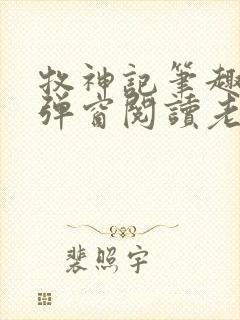 牧神記筆趣
弹窗閱讀老
裴照宇